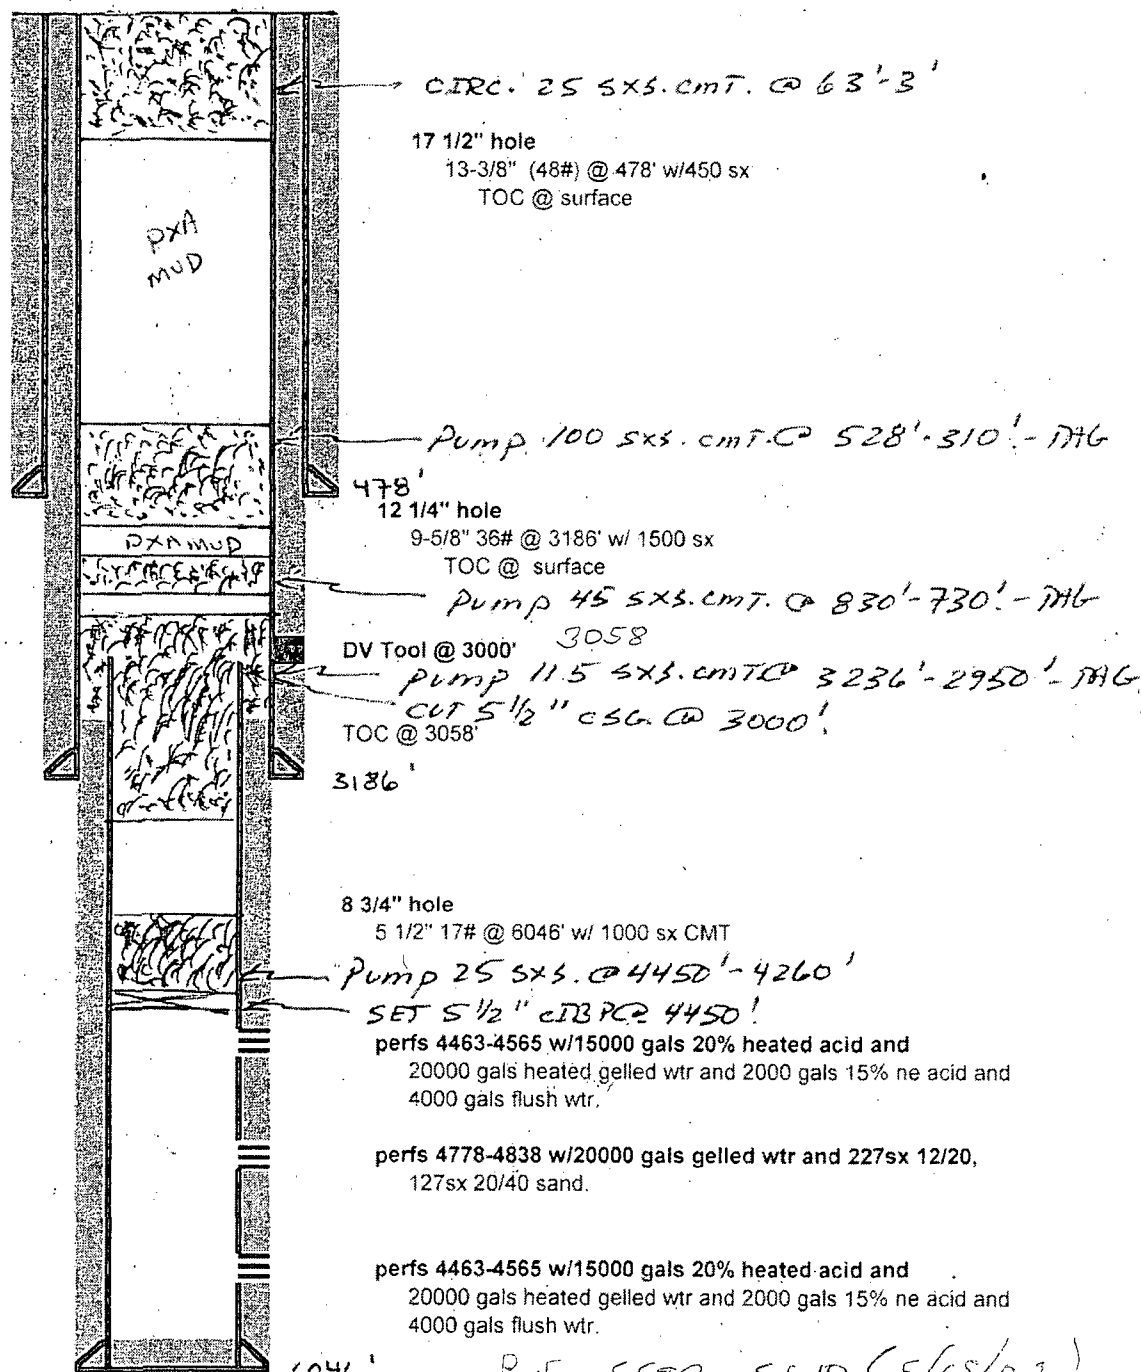 CIRC. 25 SXS. CMT. @ 63'-3'
17 1/2" hole
13-3/8" (48#) @ 478' w/450 sx
TOC @ surface
PXA
MUD
Pump 100 SXS. CMT. @ 528'-310'.- TAG
478'
12 1/4" hole
9-5/8" 36# @ 3186' w/ 1500 sx
PXA MUD
TOC @ surface
Pump 45 SXS. CMT. @ 830'-730'.- TAG
3058
DV Tool @ 3000'
Pump 115 SXS. CMT @ 3236'-2950'- TAG.
CUT 5 1/2" CSG. @ 3000'.
TOC @ 3058'
3186'
8 3/4" hole
5 1/2" 17# @ 6046' w/ 1000 sx CMT
Pump 25 SXS. @ 4450'-4260'
SET 5 1/2" CIBP @ 4450'.
perfs 4463-4565 w/15000 gals 20% heated acid and
20000 gals heated gelled wtr and 2000 gals 15% ne acid and
4000 gals flush wtr.
perfs 4778-4838 w/20000 gals gelled wtr and 227sx 12/20,
127sx 20/40 sand.
perfs 4463-4565 w/15000 gals 20% heated acid and
20000 gals heated gelled wtr and 2000 gals 15% ne acid and
4000 gals flush wtr.
6046'